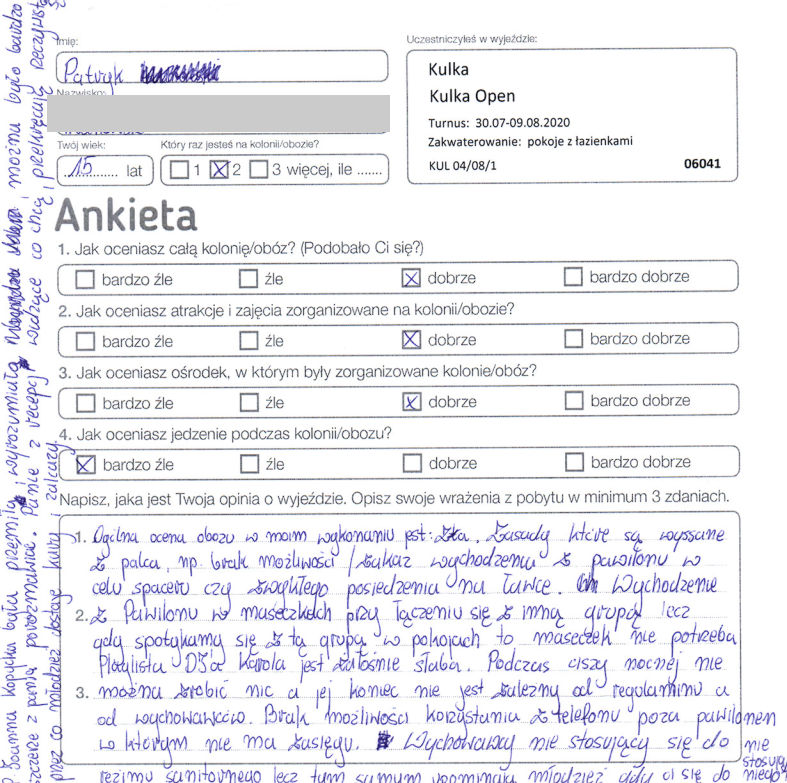 Imię:
Patryk
Nazwisko:
Twój wiek:
15 lat
Który raz jesteś na kolonii/obozie?
1 2 3 więcej, ile .......
Uczestniczyłeś w wyjeździe:
Kulka
Kulka Open
Turnus: 30.07-09.08.2020
Zakwaterowanie: pokoje z łazienkami
KUL 04/08/1 06041
Ankieta
1. Jak oceniasz całą kolonię/obóz? (Podobało Ci się?)
bardzo źle źle dobrze bardzo dobrze
2. Jak oceniasz atrakcje i zajęcia zorganizowane na kolonii/obozie?
bardzo źle źle dobrze bardzo dobrze
3. Jak oceniasz ośrodek, w którym były zorganizowane kolonie/obóz?
bardzo źle źle dobrze bardzo dobrze
4. Jak oceniasz jedzenie podczas kolonii/obozu?
bardzo źle źle dobrze bardzo dobrze
Napisz, jaka jest Twoja opinia o wyjeździe. Opisz swoje wrażenia z pobytu w minimum 3 zdaniach.
1. Ogólna ocena obozu w moim wykonaniu jest: Zła. Zasady które są wyssane
z palca, np. brak możliwości / zakaz wychodzenia z pawilonu w
celu spaceru czy zwykłego posiedzenia na ławce. Wychodzenie
2. z Pawilonu w maseczkach przy łączeniu się z inną grupą lecz
gdy spotykamy się z tą grupą w pokojach to maseczek nie potrzeba
Playlista DJa Karola jest żałośnie słaba. Podczas ciszy nocnej nie
3. można zrobić nic a jej koniec nie jest zależny od regulaminu a
od wychowawców. Brak możliwości korzystania z telefonu poza pawilonem
w którym nie ma zasięgu. Wychowawcy nie stosujący się do
reżimu sanitarnego lecz tym samym upominają młodzież gdy ci się do
nie
stosują
Joanna Kopycka była przemiłą i wyrozumiałą można było bardzo
szczerze z panią porozmawiać. Panie z recepcji widzące co chcą i przekręcają
przez co młodzież dostaje kary i zakazy.